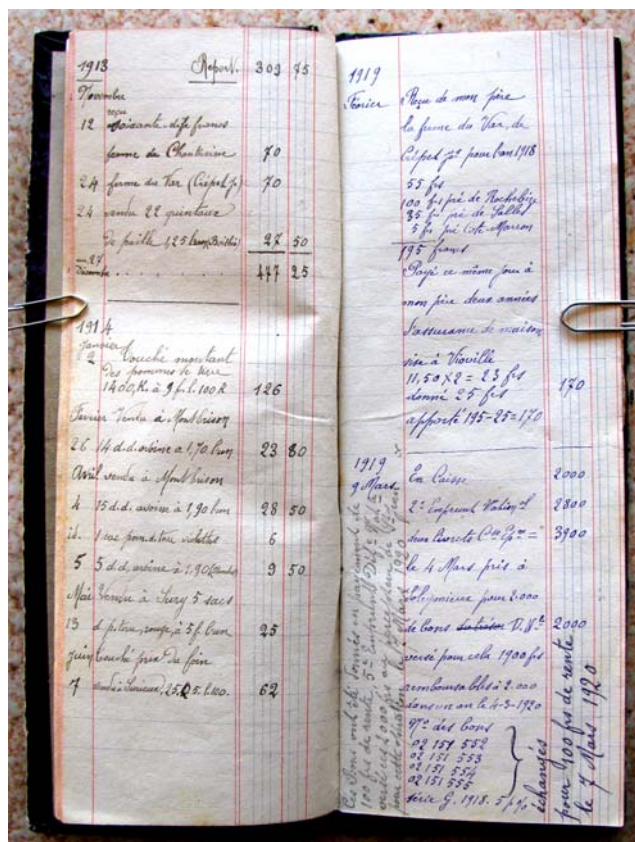 1913 Report. 309 75
Novembre
reçu
12 soixante-dix francs
ferme de Chantereine 70
24 ferme du Var (Crépet J.) 70
24 vendu 22 quintaux
de paille 1,25 l'un 27 50
27
Décembre . . . . . . 477 25
1914
Janvier
2 Touché montant
des pommes de terre
1400,K. à 9 f. l. 100 K 126
Fevrier Vendu à Montbrison
26 14 d.d. avoine a 1,70 l'un 23 80
Avril vendu à Montbrison
4 15 d.d. avoine à 1,90 l'un 28 50
id. 1 sac pom.d.terre violettes 6
5 5 d.d. avoine à 1,90 9 50
Mai Vendu à Sury 5 sacs
13 d p.terre, rouge, à 5 f. l'un 25
Juin touché prix du foin
7 vendu à 25, 5. l. 100. 62
1919
Février Reçu de mon père
la ferme du Var, de
Crépet Jn pour l'an 1918
55 frs
100 frs pré de Rochebize
35 fr pré de Salles
5 frs pré Côte Marron
195 francs
Payé ce même jour à
mon père deux années
d'assurance de maison
sise à Vioville
11,50 X 2 = 23 frs
donné 25 frs 170
apporté 195-25=170
1919
9 Mars En Caisse 2000
2e Emprunt National 2800
deux livrets Csse Epgne = 3900
le 4 Mars pris à
Soleymieux pour 2.000
de bons du trésor D. Nle 2000
versé pour cela 1900 frs
remboursables à 2.000
dans un an le 4-3-1920
Nos des bons
02 151 552
02 151 553
02 151 554
02 151 555
série G. 1918. 5 p %
échangés
pour 100 frs de rente
le 7 Mars 1920
Ces Bons ont été donnés en payement de
100 frs de rente, 5e Emprunt Défse Natle
pour cette obligation le 7 Mars 1920